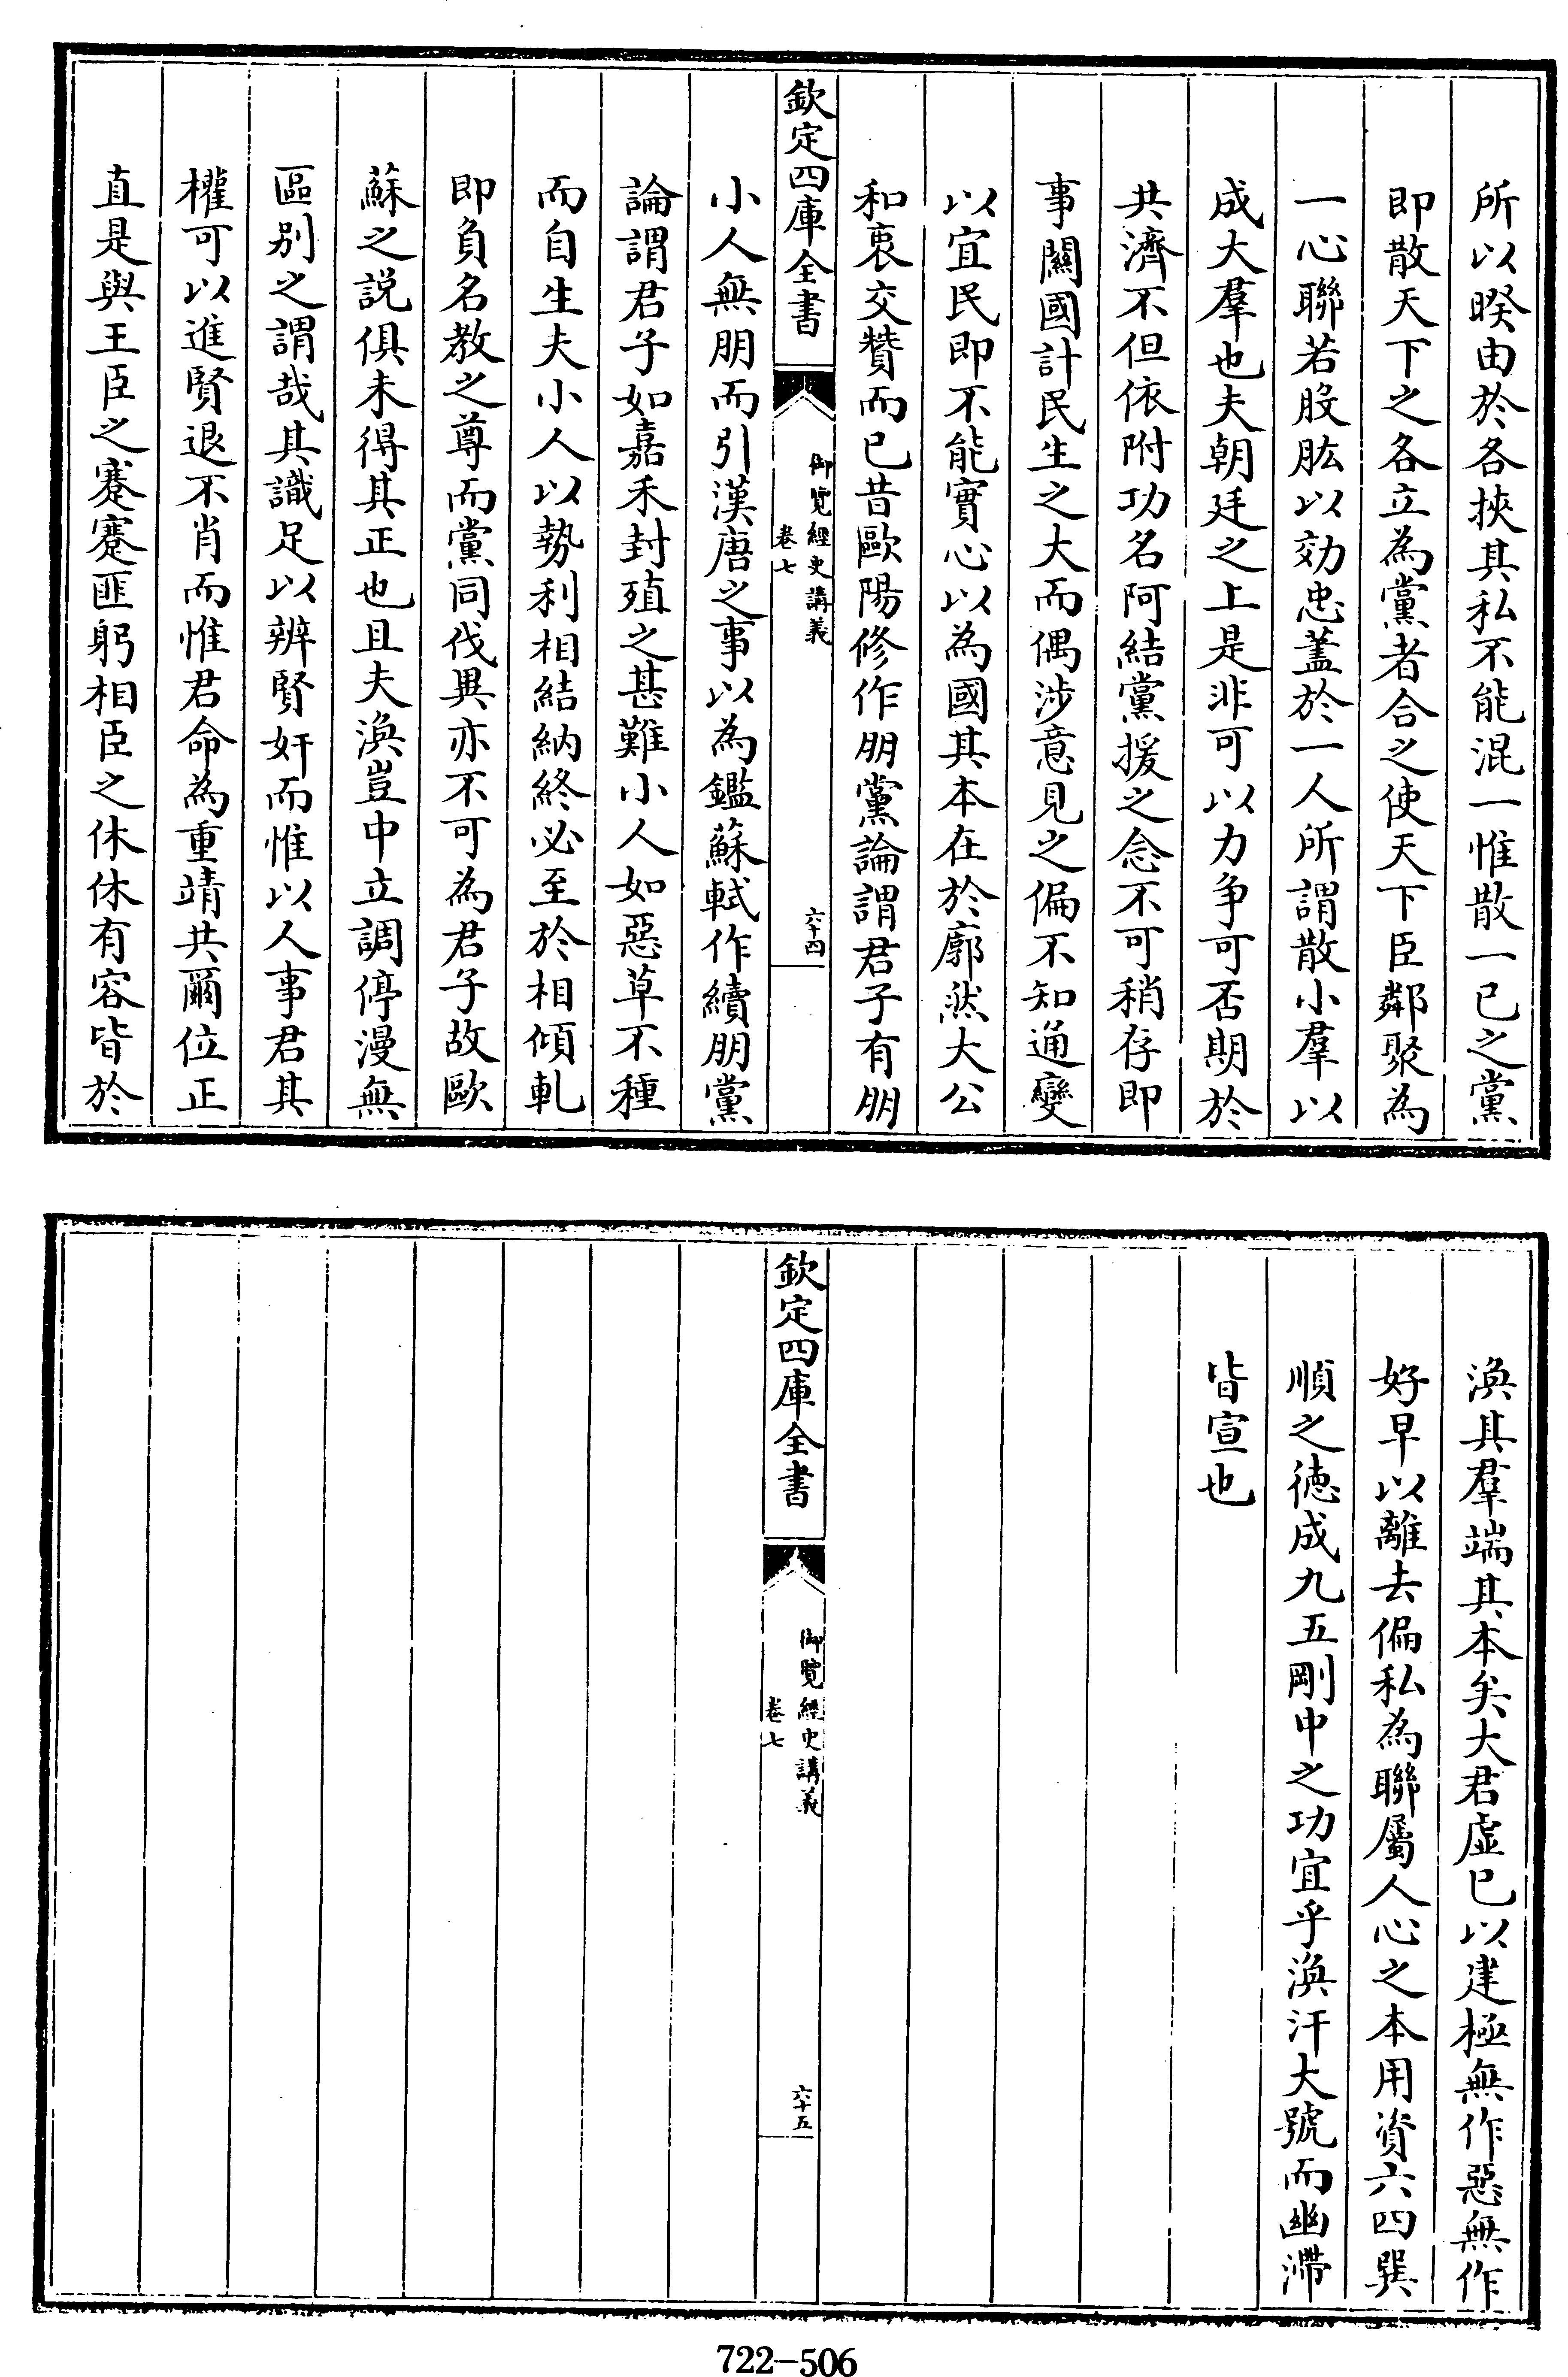 所以暌由於各挾其私不能混一惟散一已之黨
即散天下之各立為黨者合之使天下臣鄰聚為
一心聯若股肱以効忠藎於一人所謂散小羣以
成大羣也夫朝廷之上是非可以力争可否期於
共濟不但依附功名阿結黨援之念不可稍存即
事關國計民生之大而偶涉意見之偏不知通變
以宜民即不能實心以為國其本在於廓然大公
和衷交贊而已昔歐陽修作朋黨論謂君子有朋
欽定四庫全書
御覽經史講義
卷七
六十四
小人無朋而引漢唐之事以為鑑蘇軾作續朋黨
論謂君子如嘉禾封殖之甚難小人如惡草不種
而自生夫小人以勢利相結納終必至於相傾軋
即負名教之尊而黨同伐異亦不可為君子故歐
蘇之説俱未得其正也且夫渙豈中立調停漫無
區别之謂哉其識足以辨賢奸而惟以人事君其
權可以進賢退不肖而惟君命為重靖共爾位正
直是與王臣之蹇蹇匪躬相臣之休休有容皆於
渙其羣端其本矣大君虚已以建極無作惡無作
好早以離去偏私為聯屬人心之本用資六四巽
順之德成九五剛中之功宜乎渙汗大號而幽滯
皆宣也
欽定四庫全書
御覽經史講義
卷七
六十五
722-506